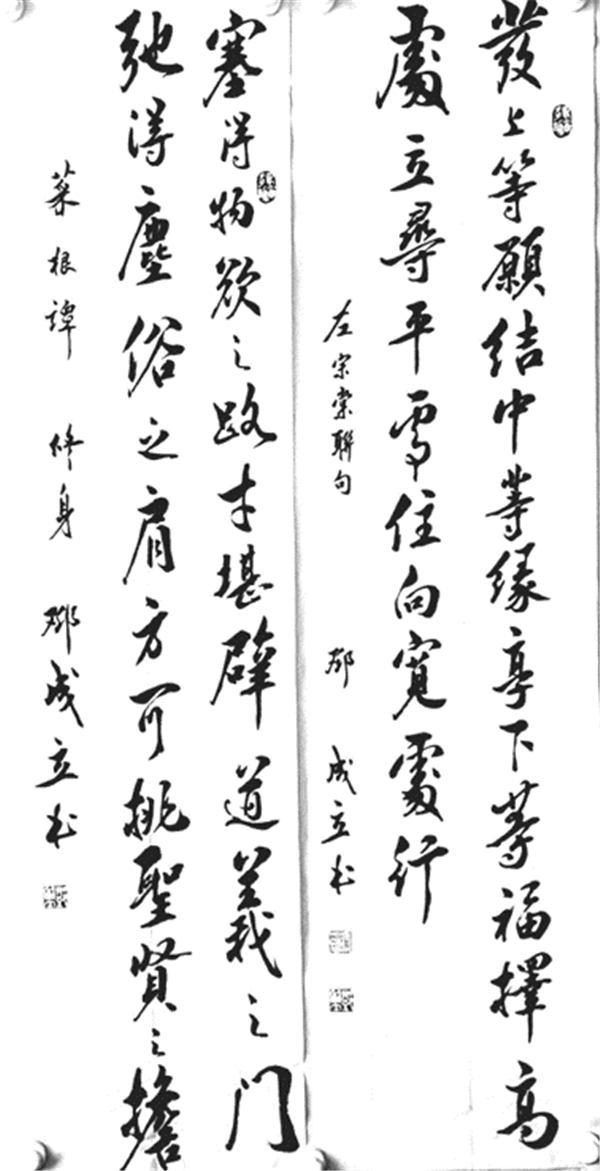 發上等願結中等緣享下等福擇高
處立尋平處住向寬處行
左宗棠聯句 成立书
塞得物欲之路才堪辟道義之门
弛得塵俗之肩方可挑聖賢之擔
菜根譚 修身 成立书